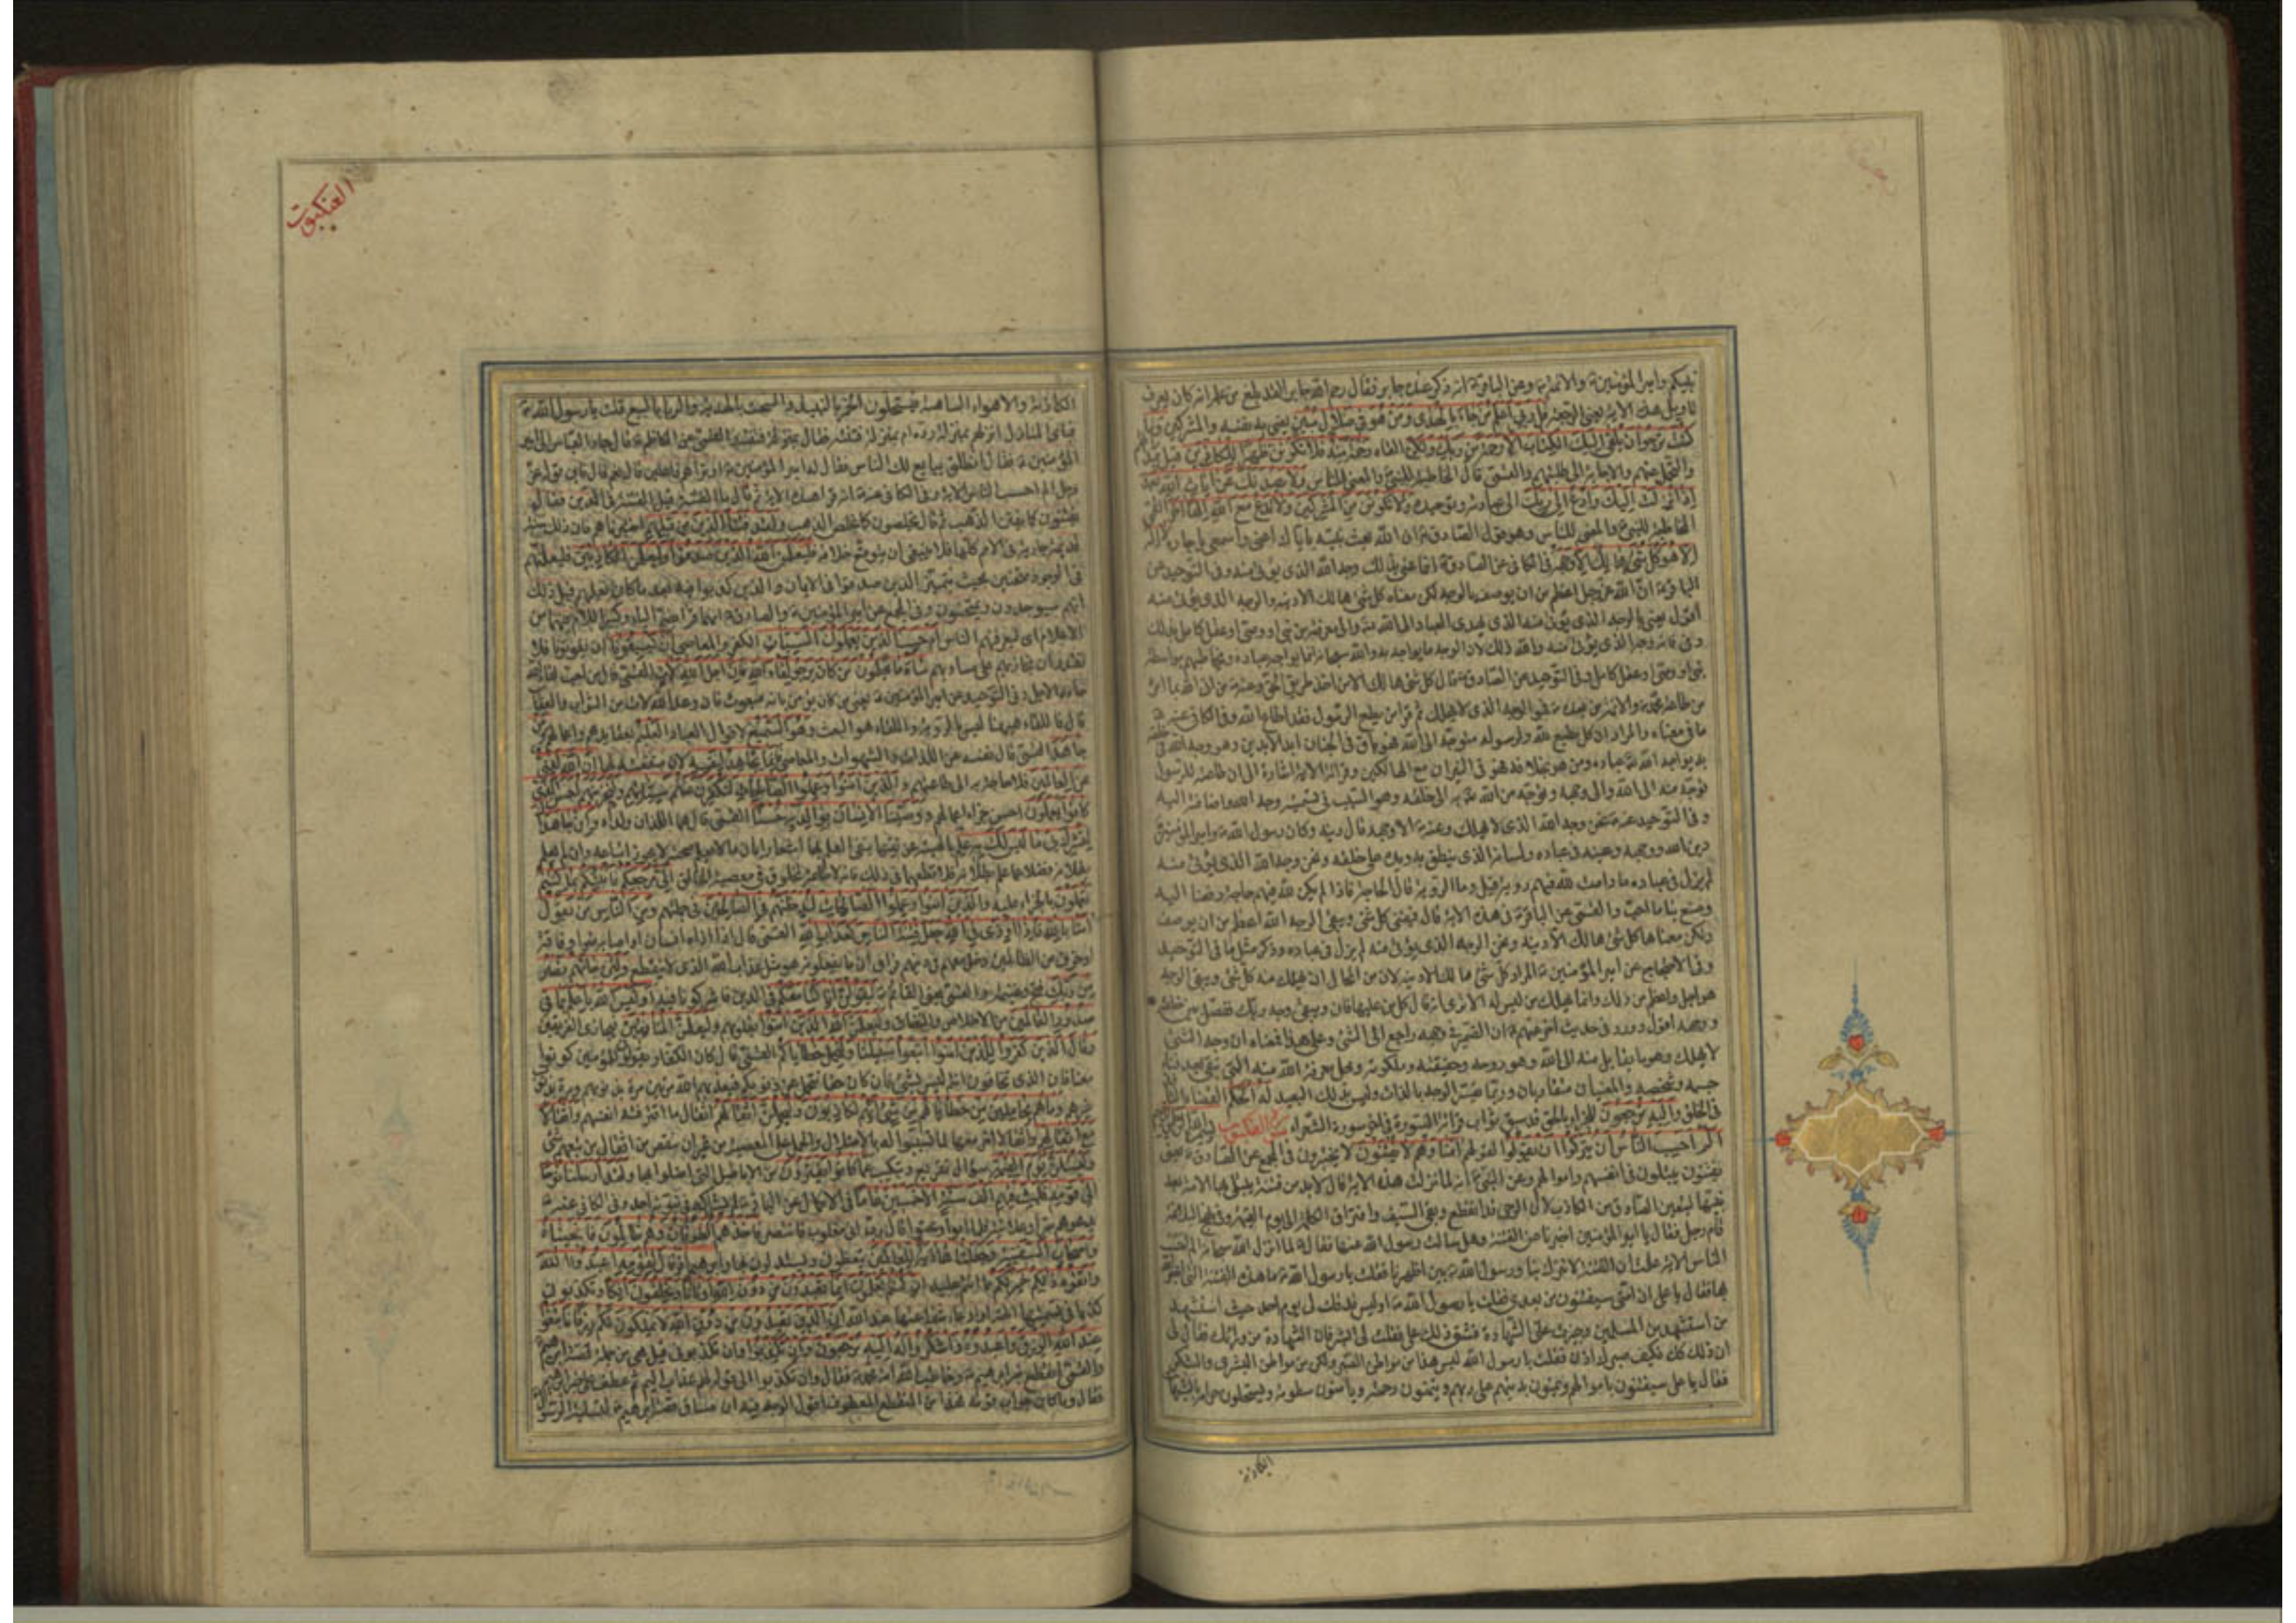 نبيكم وامير المؤمنين والائمة وعن الباقر انه ذكر عنده جابر فقال رحم الله جابرا لقد بلغ من علمه انه كان يعرف
تاويل هذه الاية يعني الرجعة قل ربي اعلم من جاء بالهدى ومن هو في ضلال مبين يعني به نفسه والمشركين وما
كنت ترجوا ان يلقى اليك الكتاب الا رحمة من ربك ولكن القاه رحمة منه فلا تكونن ظهيرا للكافرين
والتحمل عنهم والاجابة الى طلبتهم والقمي قال المخاطبة للنبي والمعنى للناس ولا يصدنك عن ايات الله بعد
اذ انزلت اليك وادع الى ربك الى عبادته وتوحيده ولا تكونن من المشركين ولا تدع مع الله الها اخر القمي
المخاطبة للنبي والمعنى للناس وهو قول الصادق ان الله بعث نبيه باياك اعني واسمعي يا جارة لا اله
الا هو كل شيء هالك الا وجهه في الكافي عن الصادق انما عنى بذلك وجه الله الذي يؤتى منه وفي التوحيد عن
الباقر ان الله عز وجل اعظم من ان يوصف بالوجه لكن معناه كل شيء هالك الا دينه والوجه الذي يؤتى منه
اقول يعني بالوجه الذي يؤتى منه الذي يهدي العباد الى الله والى معرفته من نبي او وصي او عقل كامل بذلك
وفي فانه وجه الذي يؤتى الله منه وذلك لان الوجه ما يواجه به والله سبحانه انما يواجه عباده ويخاطبهم بواسطة
نبي او وصي او عقل كامل وفي التوحيد عن الصادق قال كل شيء هالك الا من اخذ طريق الحق وعنه من اتى الله بما امر
من طاعة محمد والائمة من بعده فهو الوجه الذي لا يهلك ثم قرا من يطع الرسول فقد اطاع الله وفي الكافي عنه
ما في معناه والمراد ان كل مطيع لله ولرسوله متوجه الى الله فهو باق في الجنان ابد الابدين وهو وجه الله في
به يواجه الله عباده ومن هو بخلافه فهو في النيران مع الهالكين وقراءة الاية اشارة الى ان طاعته للرسول
توجه منه الى الله والى وجهه وتوجه من الله به الى خلقه وهو السبب في تسميته وجه الله واضافته اليه
وفي التوحيد عنه نحن وجه الله الذي لا يهلك وعنه الا وجهه قال دينه وكان رسول الله وامير المؤمنين
دين الله ووجهه وعينه في عباده ولسانه الذي ينطق به ويده على خلقه ونحن وجه الله الذي يؤتى منه
لم نزل في عباده ما دامت لله فيهم روية قيل وما الروية قال الحاجة فاذا لم يكن لله فيهم حاجة رفعنا اليه
وصنع بنا ما احب والقمي عن الباقر في هذه الاية قال فيفنى كل شيء ويبقى الوجه الله اعظم من ان يوصف
ولكن معناها كل شيء هالك الا دينه ونحن الوجه الذي يؤتى منه لم نزل في عباده وذكر مثل ما في التوحيد
وفي الاحتجاج عن امير المؤمنين المراد كل شيء هالك الا دينه لان من المحال ان يهلك منه كل شيء ويبقى الوجه
هو اجل واعظم من ذلك وانما يهلك من ليس له الا ترى انه قال كل من عليها فان ويبقى وجه ربك ففصل بين خلقه
ووجهه اقول وورد في حديث اخر عنهم ان الضمير في وجهه راجع الى الشيء وعلى هذا فمعناه ان وجه الشيء
لا يهلك وهو ما يقابل منه الى الله وهو روحه وحقيقته وملكوته ومحل معرفة الله منه التي تبقى بعد فناء
جسمه وشخصه والمعنيان متقاربان وربما يفسر الوجه بالذات وليس بذلك البعيد له الحكم القضاء النافذ
في الخلق واليه ترجعون للجزاء بالحق قد سبق ثواب قراءة السورة في اخر سورة الشعراء سورة العنكبوت
الم احسب الناس ان يتركوا ان يقولوا امنا وهم لا يفتنون لا يختبرون في المجمع عن الصادق معنى
يفتنون يبتلون في انفسهم واموالهم وعن النبي انه لما نزلت هذه الاية قال لا بد من فتنة يبتلى بها الامة بعد
نبيها ليتعين الصادق من الكاذب لان الوحي قد انقطع وبقي السيف وافتراق الكلمة الى يوم القيمة وفي نهج البلاغة
قام رجل فقال يا امير المؤمنين اخبرنا عن الفتنة وهل سالت رسول الله عنها فقال لما انزل الله سبحانه الم احسب
الناس الاية علمت ان الفتنة لا تنزل بنا ورسول الله بين اظهرنا فقلت يا رسول الله ما هذه الفتنة التي اخبرك
بها فقال يا علي ان امتي سيفتنون من بعدي فقلت يا رسول الله اوليس قد قلت لي يوم احد حيث استشهد
من استشهد من المسلمين وحيزت عني الشهادة فشق ذلك علي فقلت لي ابشر فان الشهادة من ورائك فقال لي
ان ذلك كذلك فكيف صبرك اذن فقلت يا رسول الله ليس هذا من مواطن الصبر ولكن من مواطن البشرى والشكر
فقال يا علي سيفتنون باموالهم ويمنون بدينهم على ربهم ويتمنون رحمته ويامنون سطوته ويستحلون حرامه بالشبهات
الكاذبة
العنكبوت
الكاذبة والاهواء الساهية فيستحلون الخمر بالنبيذ والسحت بالهدية والربا بالبيع قلت يا رسول الله
فباي المنازل انزلهم بمنزلة ردة ام بمنزلة فتنة فقال بمنزلة فتنة القمي عن الكاظم قال جاء العباس الى امير
المؤمنين فقال انطلق يبايع لك الناس فقال له امير المؤمنين اوتراهم فاعلين قال نعم قال فاين قول الله عز
وجل الم احسب الناس الاية وفي الكافي عنه انه قرا هذه الاية ثم قال ما الفتنة قيل الفتنة في الدين فقال
يفتنون كما يفتن الذهب ثم قال يخلصون كما يخلص الذهب ولقد فتنا الذين من قبلهم اختبرناهم فان ذلك سنة
قديمة جارية في الامم كلها فلا ينبغي ان يتوقع خلافه فليعلمن الله الذين صدقوا وليعلمن الكاذبين فليعلمنهم
في الوجود ممتحنين بحيث يتميز الذين صدقوا في الايمان والذين كذبوا فيه بعد ما كان يعلمهم قبل ذلك
انهم سيوجدون ويمتحنون وفي المجمع عن امير المؤمنين والصادق انهما قرءا بضم الياء وكسر اللام فيهما من
الاعلام اي ليعرفنهم الناس ام حسب الذين يعملون السيئات الكفر والمعاصي ان يسبقونا ان يفوتونا فلا
نقدر ان نجازيهم على مساويهم ساء ما يحكمون من كان يرجو لقاء الله فان اجل الله لات القمي قال من احب لقاء الله
جاءه الاجل وفي التوحيد عن امير المؤمنين يعني من كان يؤمن بانه مبعوث فان وعد الله لات من الثواب والعقاب
قال فاللقاء ههنا ليس بالرؤية واللقاء هو البعث وهو السميع لاقوال العباد العليم بعقايدهم واعمالهم ومن
جاهد القمي قال نفسه عن اللذات والشهوات والمعاصي فانما يجاهد لنفسه لان منفعته لها ان الله لغني
عن العالمين فلا حاجة به الى طاعتهم والذين امنوا وعملوا الصالحات لنكفرن عنهم سيئاتهم ولنجزينهم احسن الذي
كانوا يعملون احسن جزاء اعمالهم ووصينا الانسان بوالديه حسنا القمي قال هما اللذان ولداه وان جاهداك
لتشرك بي ما ليس لك به علم بالهيته عبر عن نفيها بنفي العلم بها اشعارا بان ما لا يعلم صحته لا يجوز اتباعه وان لم يعلم
بطلانه فضلا عما علم بطلانه فلا تطعهما في ذلك فانه لا طاعة لمخلوق في معصية الخالق الي مرجعكم فانبئكم بما كنتم
تعملون بالجزاء عليه والذين امنوا وعملوا الصالحات لندخلنهم في الصالحين في جملتهم ومن الناس من يقول
امنا بالله فاذا اوذي في الله جعل فتنة الناس كعذاب الله القمي قال اذا اذاه انسان او اصابه ضر او فاقة
او خوف من الظالمين دخل معهم في دينهم فراى ان ما يفعلونه هو مثل عذاب الله الذي لا ينقطع ولئن جاءهم نصر
من ربك فتح وغنيمة والقمي يعني القائم ليقولن انا كنا معكم في الدين فاشركونا فيه اوليس الله باعلم بما في
صدور العالمين من الاخلاص والنفاق وليعلمن الله الذين امنوا بقلوبهم وليعلمن المنافقين فيجازي الفريقين
وقال الذين كفروا للذين امنوا اتبعوا سبيلنا ولنحمل خطاياكم القمي قال كان الكفار يقولون للمؤمنين كونوا
معنا فان الذي تخافون انتم ليس بشيء فان كان حقا نتحمل عنكم ذنوبكم فيعذبهم الله مرتين مرة بذنوبهم ومرة بذنوب
غيرهم وما هم بحاملين من خطاياهم من شيء انهم لكاذبون وليحملن اثقالهم اثقال ما اقترفته انفسهم واثقالا
مع اثقالهم واثقالا اخر معها لما تسببوا له بالاضلال والحمل على المعصية من غير ان ينقص من اثقال من تبعهم شيء
وليسئلن يوم القيمة سؤال تقريع وتبكيت عما كانوا يفترون من الاباطيل التي اضلوا بها ولقد ارسلنا نوحا
الى قومه فلبث فيهم الف سنة الا خمسين عاما في الاكمال عن الباقر لم يشاركه في نبوته احد وفي الكافي عنه
يدعوهم سرا وعلانية فلما ابوا وعتوا قال رب اني مغلوب فانتصر فاخذهم الطوفان وهم ظالمون فانجيناه
واصحاب السفينة وجعلناها اية للعالمين يتعظون ويستدلون بها وابراهيم اذ قال لقومه اعبدوا الله
واتقوه ذلكم خير لكم مما انتم عليه ان كنتم تعلمون انما تعبدون من دون الله اوثانا وتخلقون افكا وتكذبون
كذبا في تسميتها الهة وادعاء شفاعتها عند الله ان الذين تعبدون من دون الله لا يملكون لكم رزقا فابتغوا
عند الله الرزق واعبدوه واشكروا له اليه ترجعون وان تكذبوا وان تكذبوني قيل هي من جملة قصة ابراهيم
والقمي انقطع خبر ابراهيم وخاطب الله امة محمد فقال وان تكذبوا الى قوله لهم عذاب اليم ثم عطف على خبر ابراهيم
فقال وما كان جواب قومه فهذا من المنقطع المعطوف اقول الوجه فيه ان مساق قصة ابراهيم لتسلية الرسول